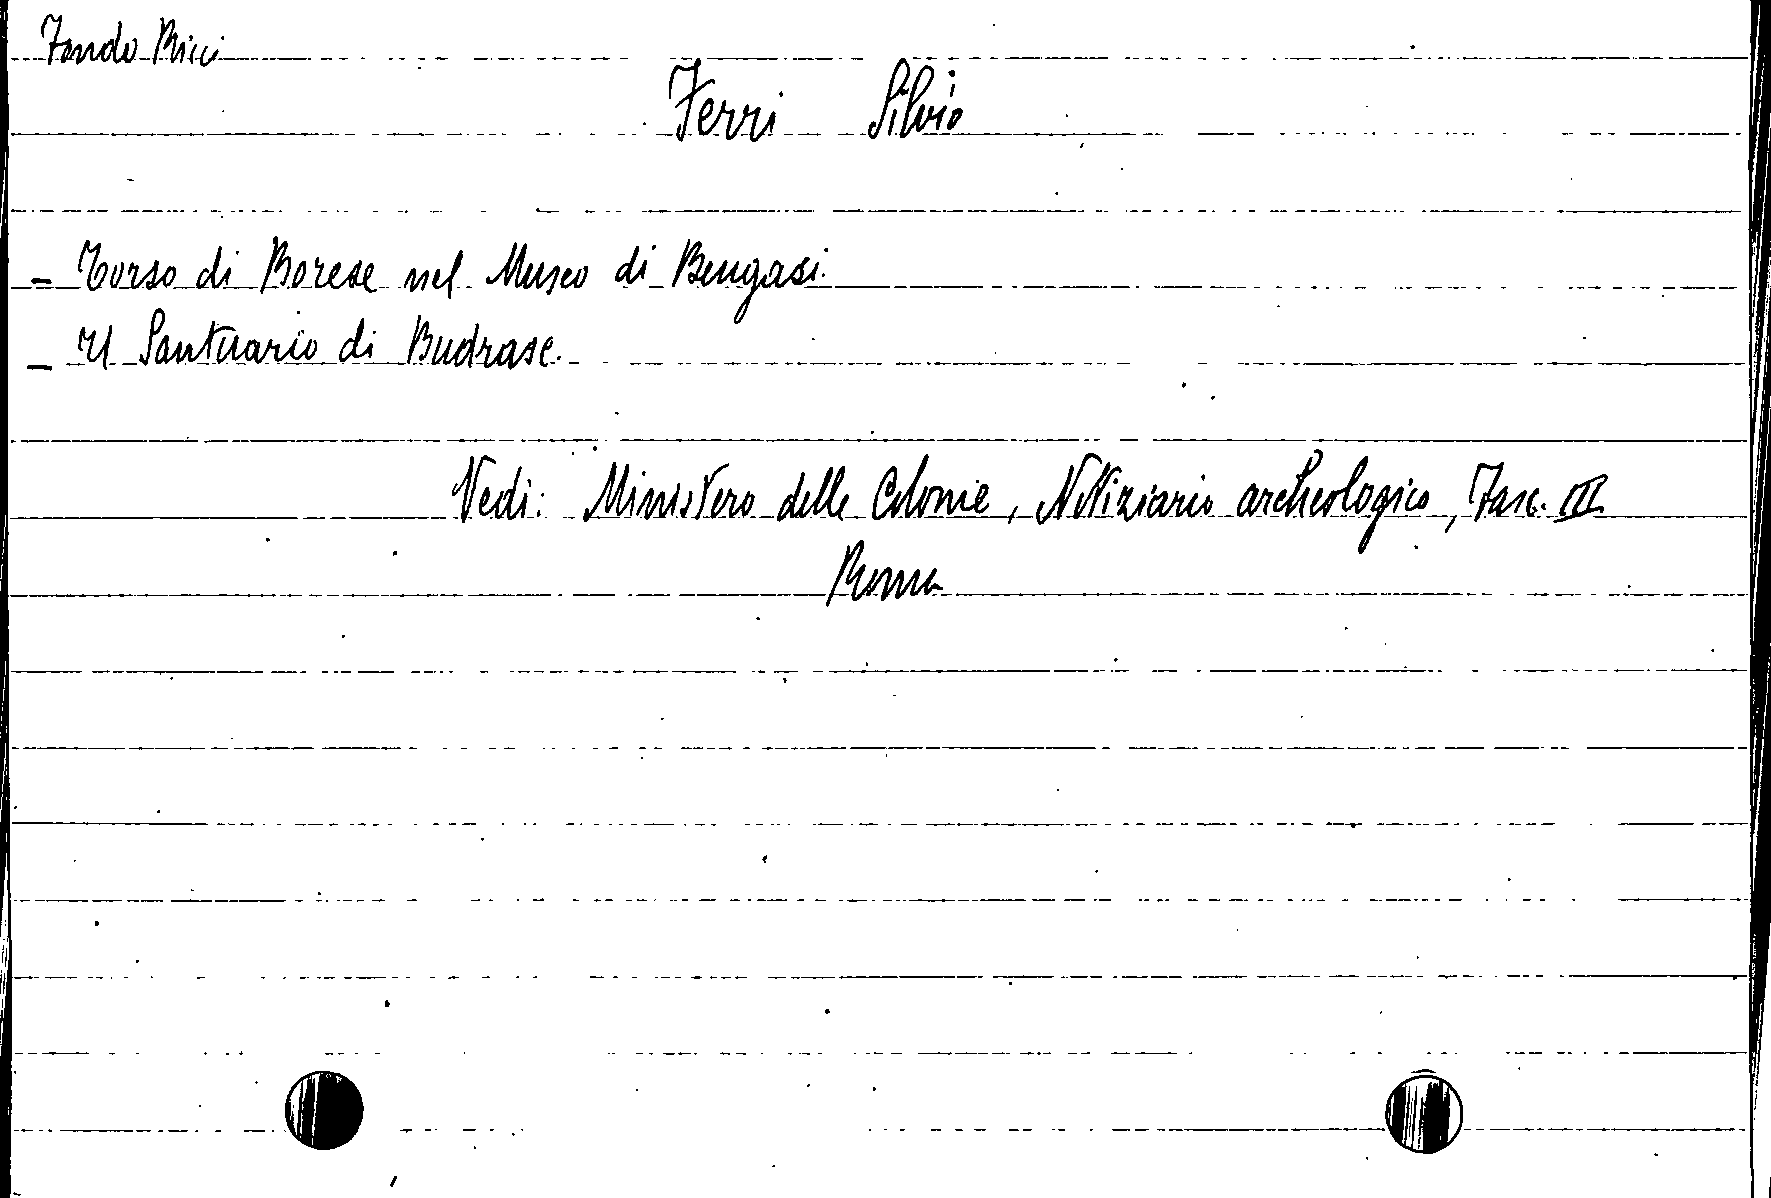 Fondo Ricci
Ferri Silvio
- Torso di Borese nel Museo di Bengasi.
- Il Santuario di Budrase.
Vedi: Ministero delle Colonie, Notiziario archeologico, Fasc. III
Roma